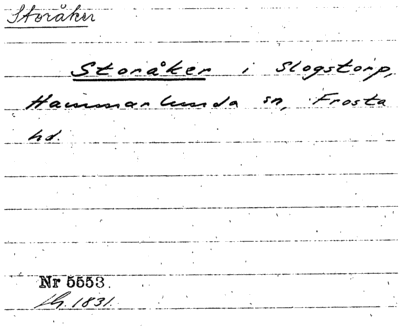 Storåker
Storåker i Slogstorp,
Hammarlunda sn, Frosta
hd.
Nr 5553.
1831.